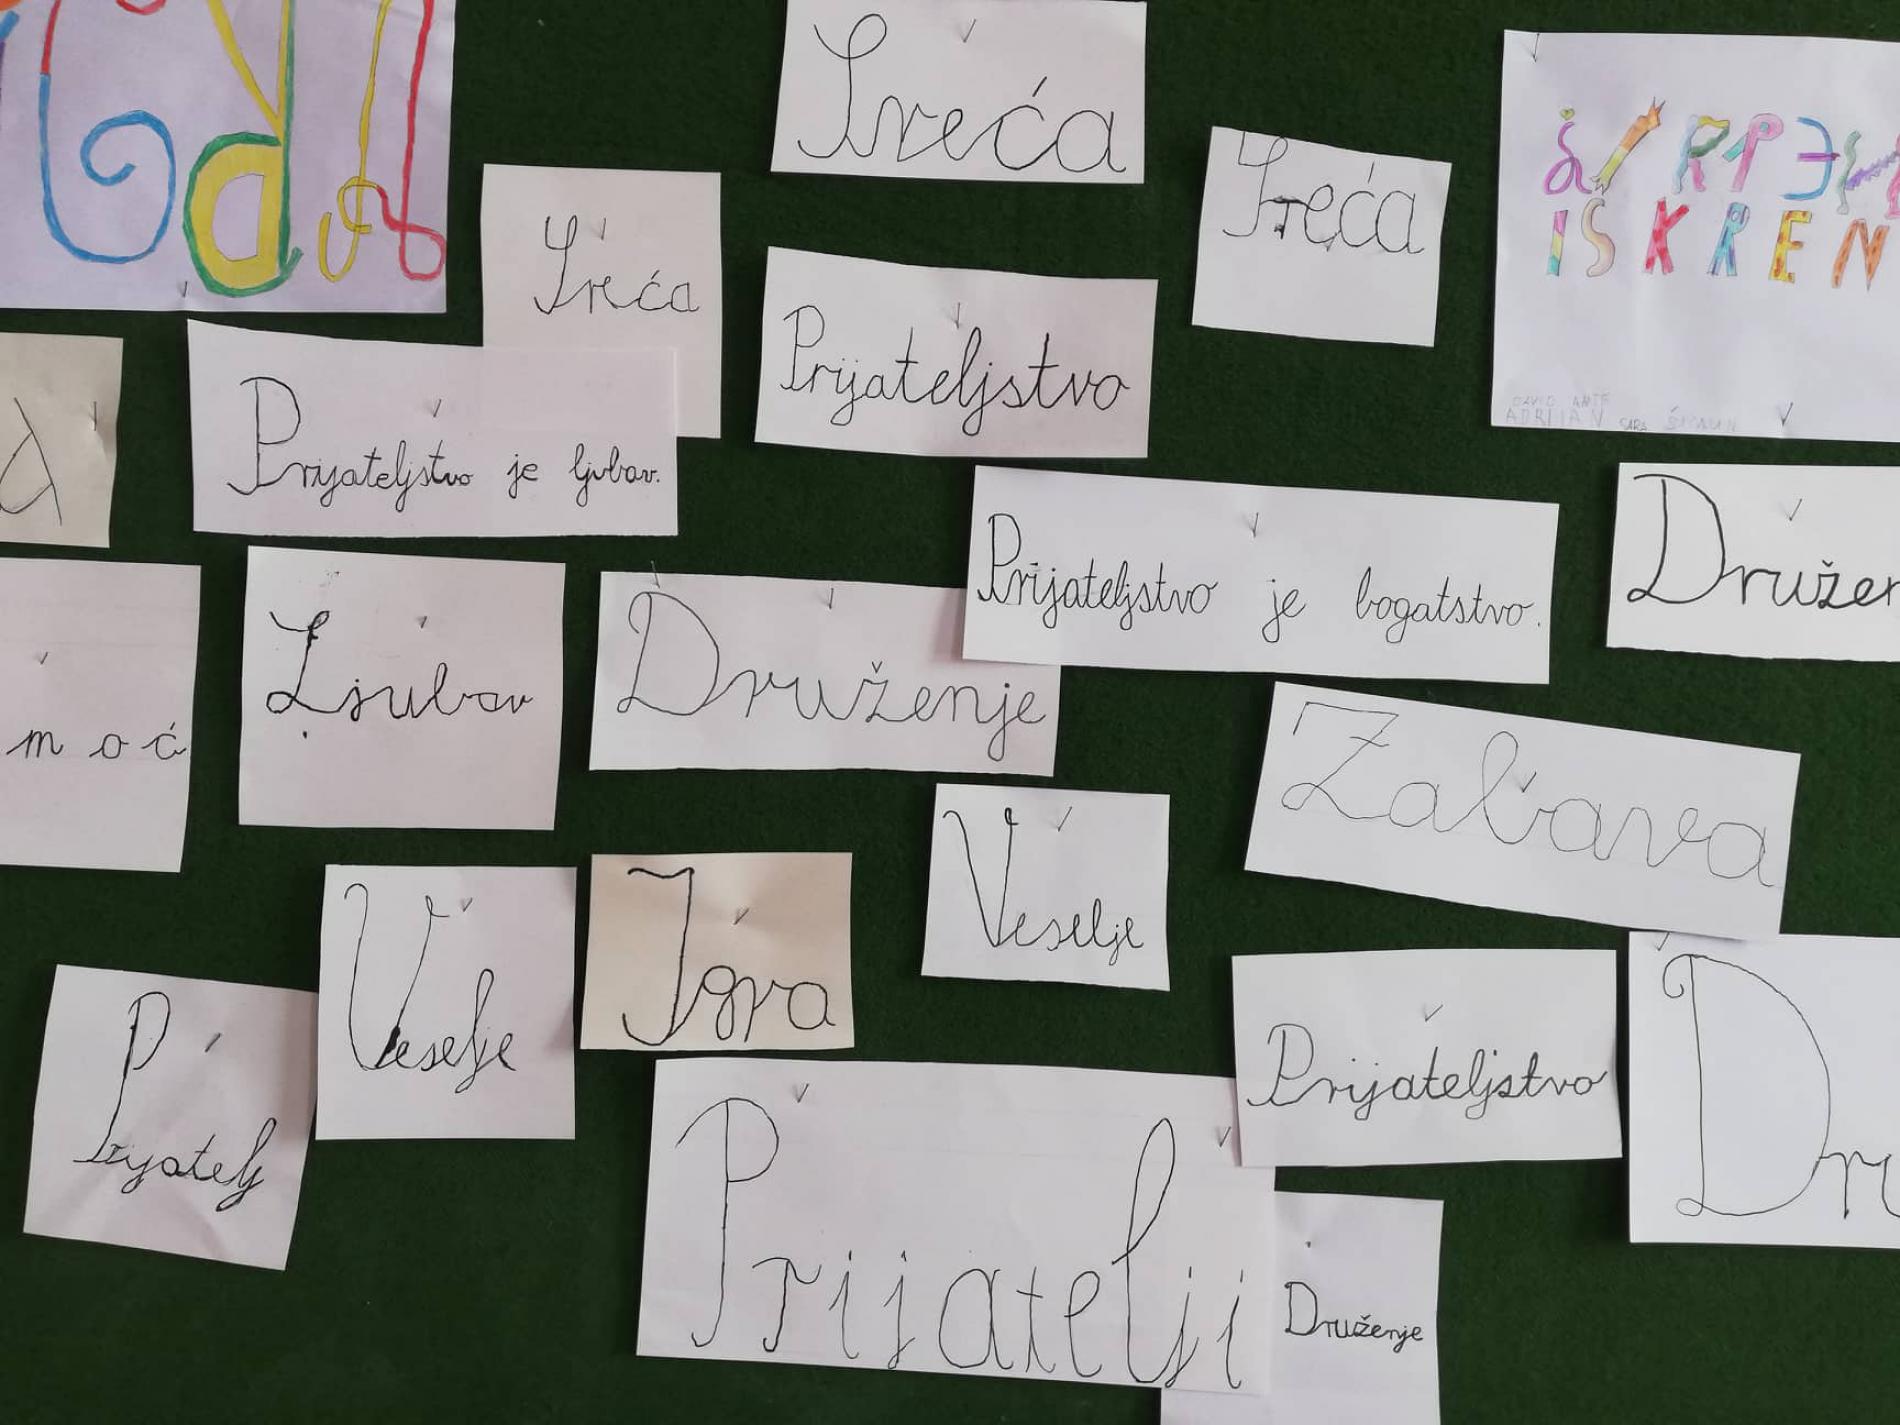 Sreća
Sreća
Sreća
ISKREN
DAVID ANTE
ADRIJAN SARA
Prijateljstvo
Prijateljstvo je ljubav.
Prijateljstvo je bogatstvo.
Družen
Ljubav
Druženje
moć
Zabava
Veselje
Igra
Veselje
Prijatelj
Prijateljstvo
Dru
Prijatelji
Druženje